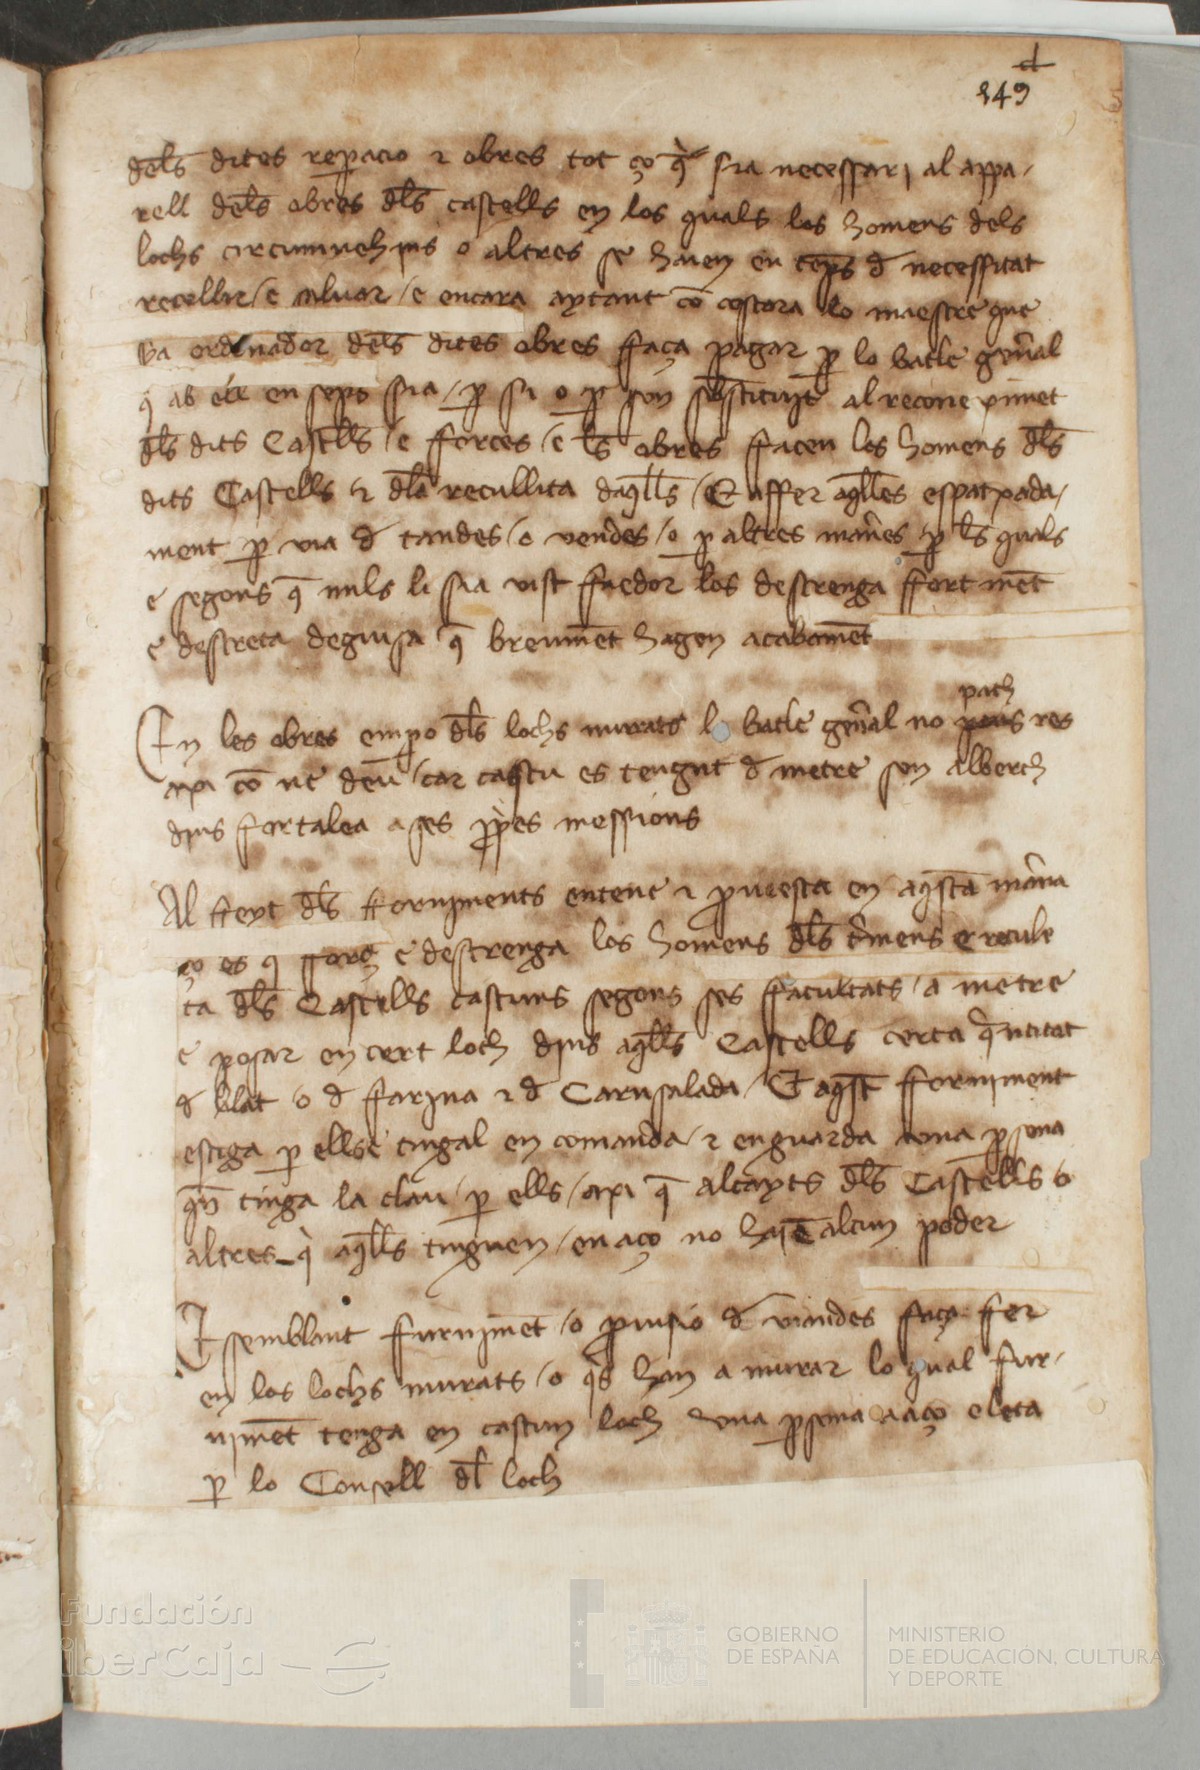 d
149
dels dites repacio ⁊ obres tot ço q̃ sia necessari al appa/
rell dels obres dls castells en los quals los homens dels
lochs circumuehins o altres se hauen en temps d necessitat
recullir /e saluar /e encara aytant co costara lo maestre que
sia ordenador dels dites obres faça pagar p lo batle gen̄al
q ab ell ensemps sia / p si o p son substituit al reconeximet
dls dits Castells /e forces /e ls obres facen los homens dls
dits Castells ⁊ dla recullita daq̃lls / E affer aq̃lles espatxada/
ment p via d tandes /o vendes /o p altres man̄es p ls quals
e segons q̄ mils li sia vist faedor los destrenga fort mēt
e destreta deguisa q̄ breumēt hagen acabamēt
En les obres empo dls lochs murats lo batle gen̄al no pach res
axi cō ne deu /car cascu es tengut d metre son alberch
dins fortalea a ses pp̄es messions
Al feyt dls forniments entene ⁊ prouesca en aq̃sta man̄a
ço es q forç e destrenga los homens dls t̄mens e reculle
ta dls Castells cascuns segons ses facultats /a metre
e posar en cert loch dins aq̃lls Castells certa q̃ntitat
d blat o d farina ⁊ d Carnsalada / Et aq̃st forniment
estiga p ells e tingal en comanda / ⁊ en guarda vna psona
qn̄ tinga la clau / p ells /axi q̄ alcayts dls Castells o
altres q̃ aq̃lls tinguen /en aço no haiē alcun poder
E semblant furnimēt /o prouisio d viandes faça fer
en los lochs murats /o q̃s han a murar lo qual fur/
nimēt tenga en cascun loch vna psona a aço eleta
p lo Consell dl loch
Fundación
iberCaja
GOBIERNO
DE ESPAÑA
MINISTERIO
DE EDUCACIÓN, CULTURA
Y DEPORTE